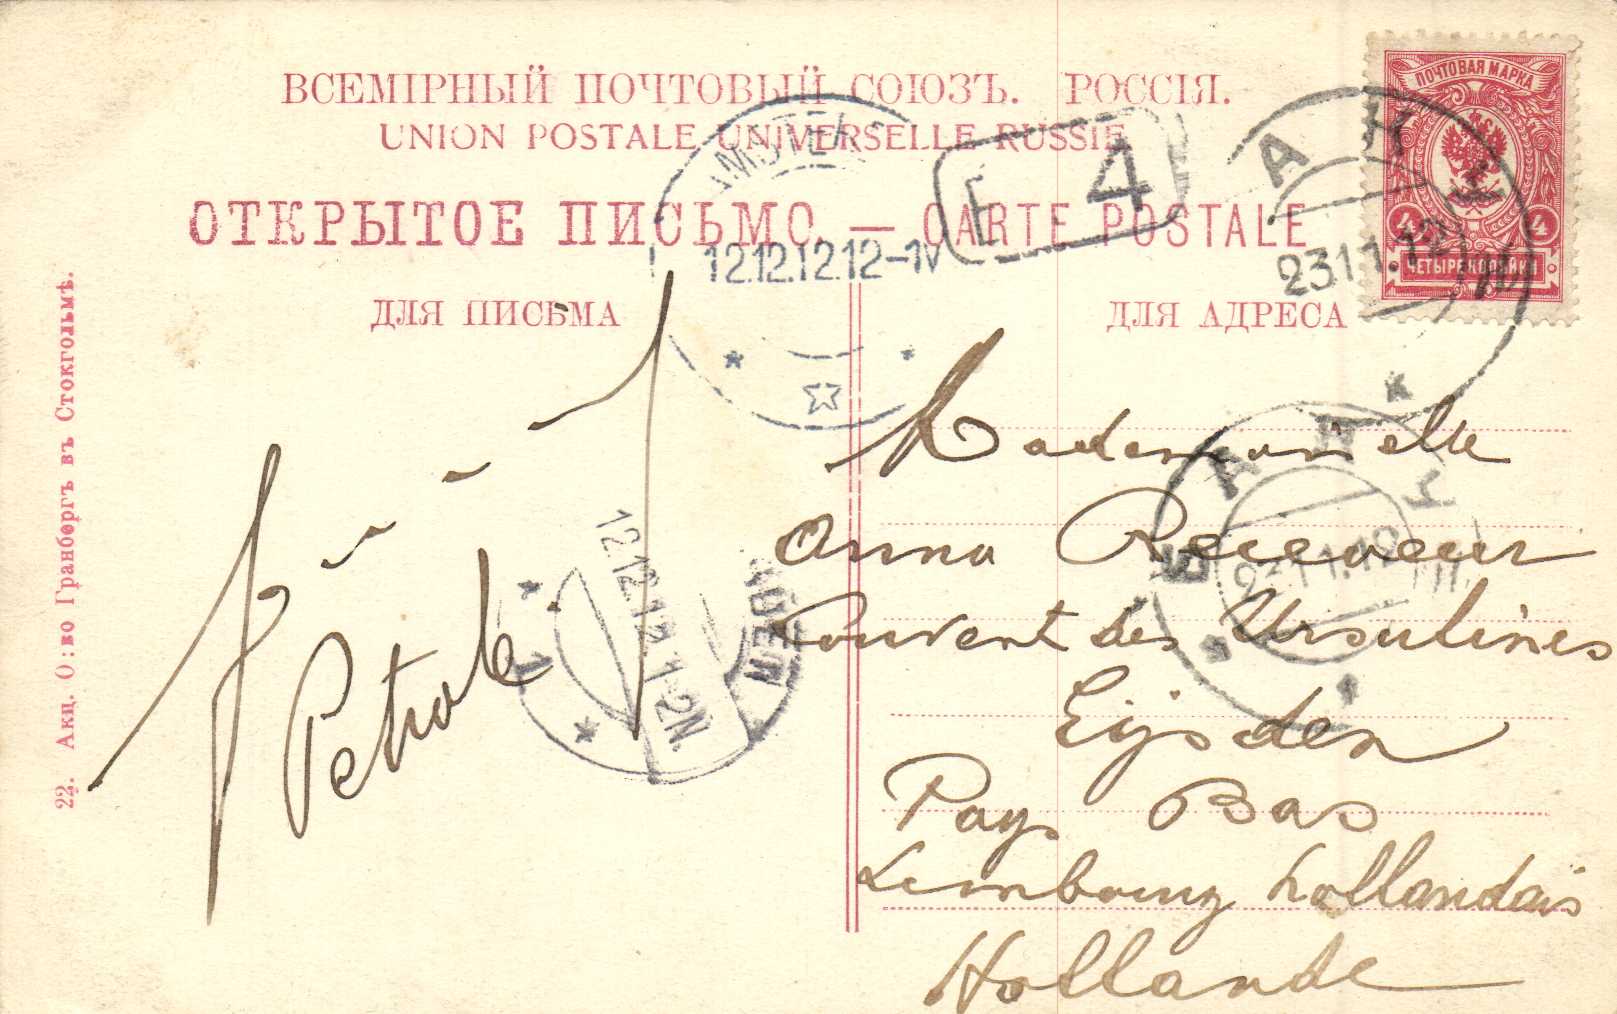 ВСЕМІРНЫЙ ПОЧТОВЫЙ СОЮЗЪ. РОССІЯ.
UNION POSTALE UNIVERSELLE RUSSIE
ОТКРЫТОЕ ПИСЬМО — CARTE POSTALE
ДЛЯ ПИСЬМА
ДЛЯ АДРЕСА
22. Акц. О:во Гранбергъ въ Стокгольмѣ.
ПОЧТОВАЯ МАРКА
4 4
ЧЕТЫРЕ КОПѢЙКИ
12.12.12.12-1V
4
23.11.12
БАКУ
23.11.12
12.12.12.1-2N.
1
Pétrole
Mademoiselle
Anna Receveur
Couvent des Ursulines
Eijsden
Pays Bas
Limbourg hollandais
Hollande